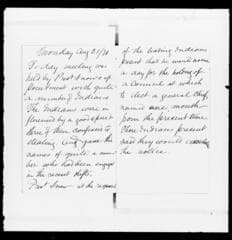 Monday Aug 21/
To day meeting was
held by Prest Snow's ap
pointment with quite
a number Indians
The Indians were in
fluenced by a good spirit
there & then confessed to
stealing and gave the
names of quite a num
ber who had been engaged
in the recent thefts.
Prest Snow at the request
of the leading Indians
present that he would name
a day for the holding of
a Council at which
to elect a general Chief,
named one month
from the present time
Those Indians present
said they would
the notice.